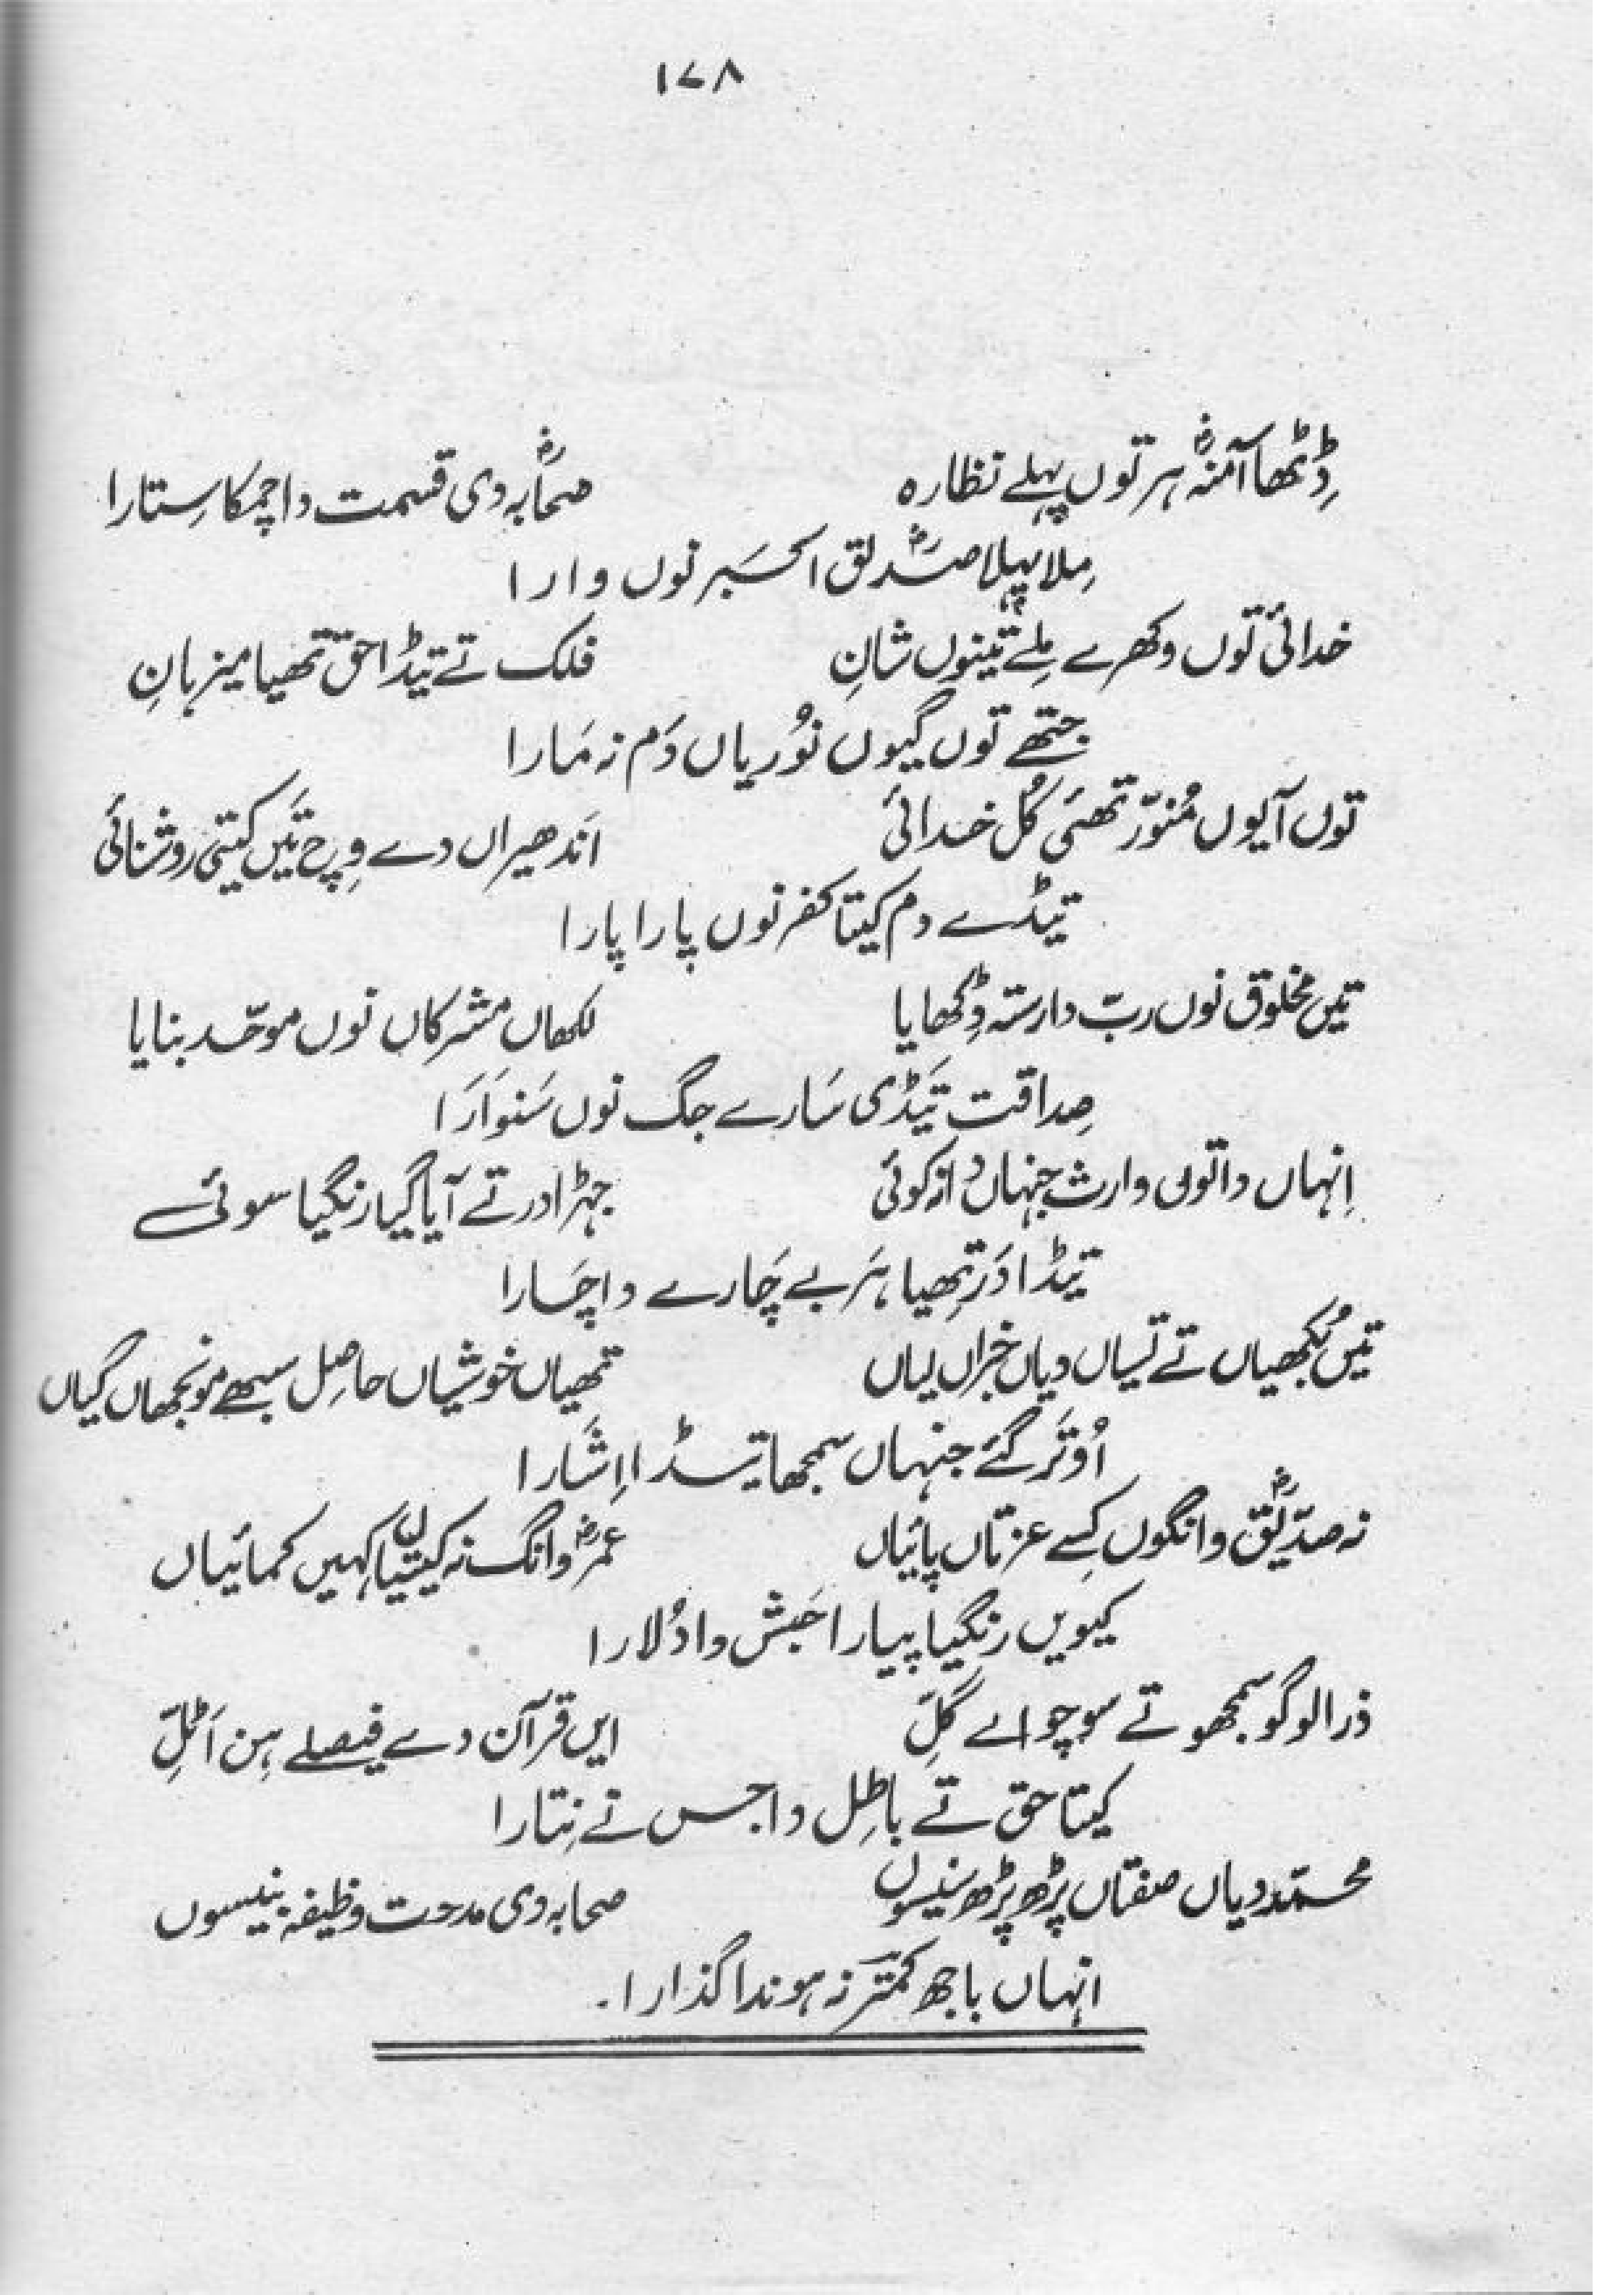 ۱۷۸
ڈِٹھا آمنہؓ ہر توں پہلے نظارہ
صحابہؓ دی قسمت دا چمکا سِتارا
مِلا پہلا صدیقؓ اکبر نوں وارا
خدائی توں وکھرے مِلے تینوں شانِ
فلک تے تیڈا حق تھیا میزبانِ
جتھے توں گیوں نوُریاں دَم نہ مَارا
توں آیوں مُنوّر تھئی کُل خدائی
اَندھیراں دے وِچ تَیں کیتی روشنائی
تیڈے دم کیتا کفر نوں پارا پارا
تیں مخلوق نوں ربّ دا رستہ وِکھایا
لکھاں مشرکاں نوں موحّد بنایا
صِداقت تَیڈی سَارے جگ نوں سَنوَارَا
اِنہاں دا توں وارث جنہاں دُا نہ کوئی
جہڑا در تے آیا گیا رنگیا سوئی
تیڈا دَر تھِیا ہَر بے چَارے دا چَارا
تیں بُکھیاں تے تسیاں دیاں خبراں لیاں
تھیاں خوشیاں حاصِل سبھے مونجھاں گیاں
اُو تَر گئے جنہاں سمجھا تیڈا اِشَارا
نہ صدّیقؓ وانگوں کِسے عزتاں پائیاں
عمرؓ وانگ نہ کیتیاں کہیں کمائیاں
کیویں رنگیا پیارا حَبش دا دُلارا
ذرا لوگو سمجھو تے سوچو اے گَلِّ
ایں قرآن دے فیصلے ہِن اَٹلِّ
کیتا حق تے باطِل دا جس نے نِتارا
محمّد دیاں صفتاں پڑھ پڑھ سُنیسوں
صحابہ دی مدحت وظیفہ بنیسوں
انہاں باجھ کمتَر نہ ہوندا گذارا.